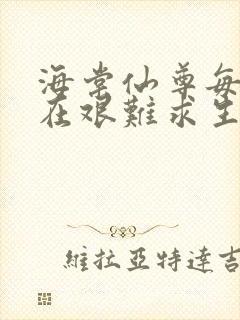 海棠仙尊每
在艰難求生
維拉亞特達吉